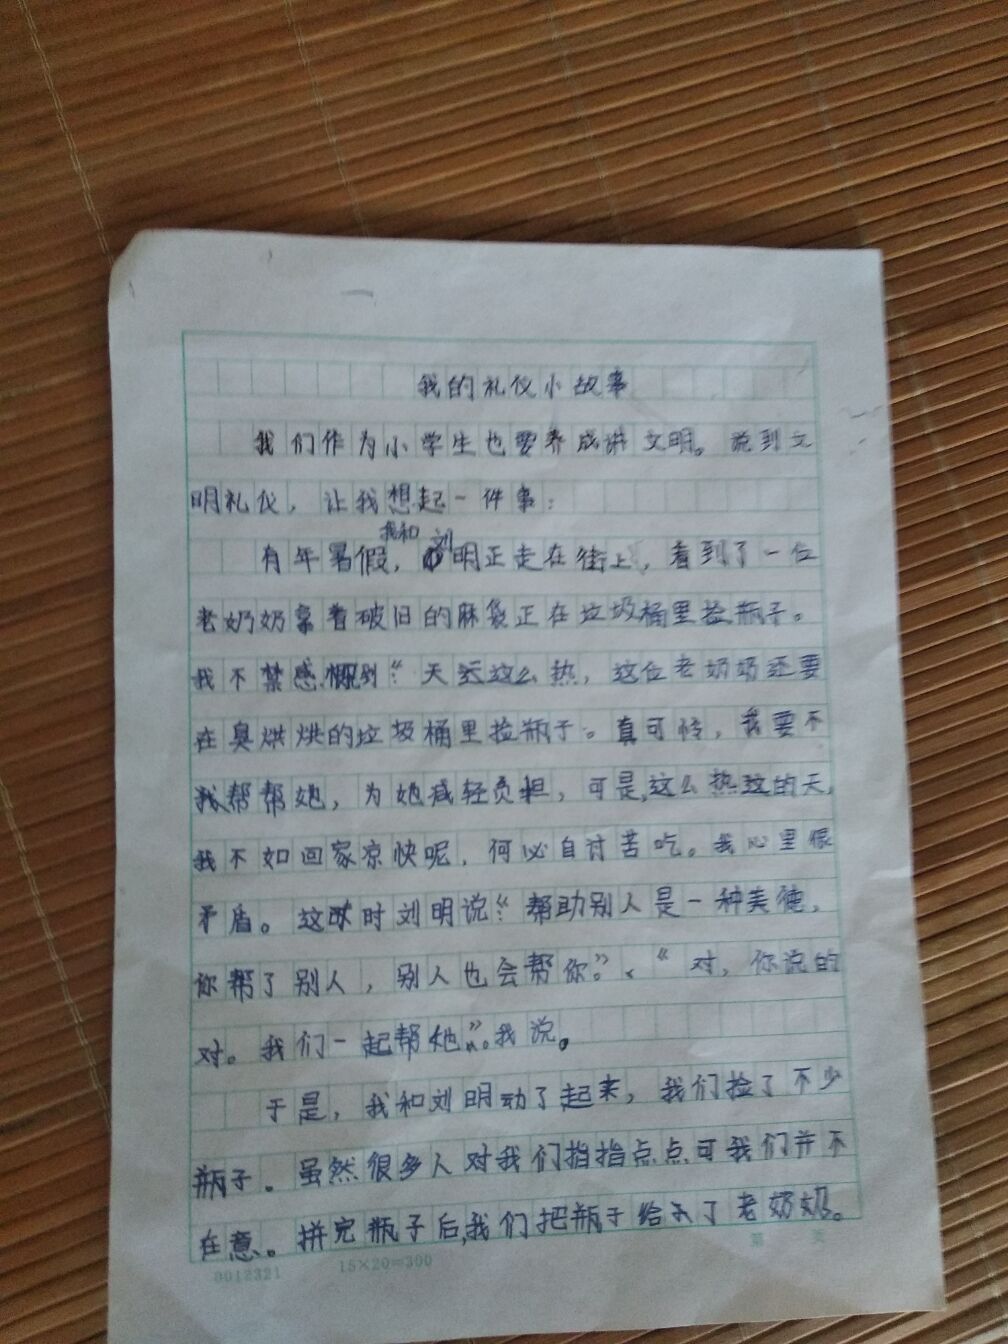 我的礼仪小故事
我们作为小学生也要养成讲文明。说到文
明礼仪，让我想起一件事：
有年暑假，我和刘明正走在街上，看到了一位
老奶奶拿着破旧的麻袋正在垃圾桶里捡瓶子。
我不禁感概到“天天这么热，这位老奶奶还要
在臭烘烘的垃圾桶里捡瓶子。真可怜，我要不
我帮帮她，为她减轻负担，可是，这么热的天，
我不如回家凉快呢，何必自讨苦吃。我心里很
矛盾。这时刘明说“帮助别人是一种美德，
你帮了别人，别人也会帮你。”、“对，你说的
对。我们一起帮她”。我说。
于是，我和刘明动了起来，我们捡了不少
瓶子。虽然很多人对我们指指点点可我们并不
在意。拼完瓶子后，我们把瓶子给了老奶奶。
第 页
0012321 15×20=300